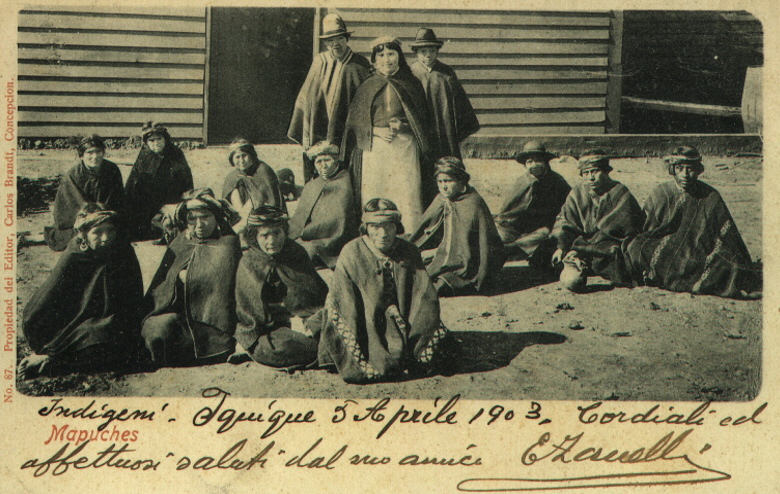 No. 87. Propiedad del Editor, Carlos Brandt, Concepcion.
Indigeni - Iquique 5 Aprile 1903. Cordiali ed
Mapuches
affettuosi saluti dal suo amico EZanelli